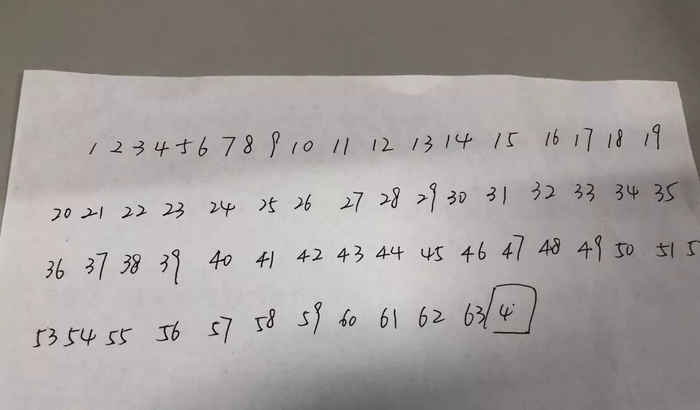 1 2 3 4 5 6 7 8 9 10 11 12 13 14 15 16 17 18 19
20 21 22 23 24 25 26 27 28 29 30 31 32 33 34 35
36 37 38 39 40 41 42 43 44 45 46 47 48 49 50 51 5
53 54 55 56 57 58 59 60 61 62 63 4